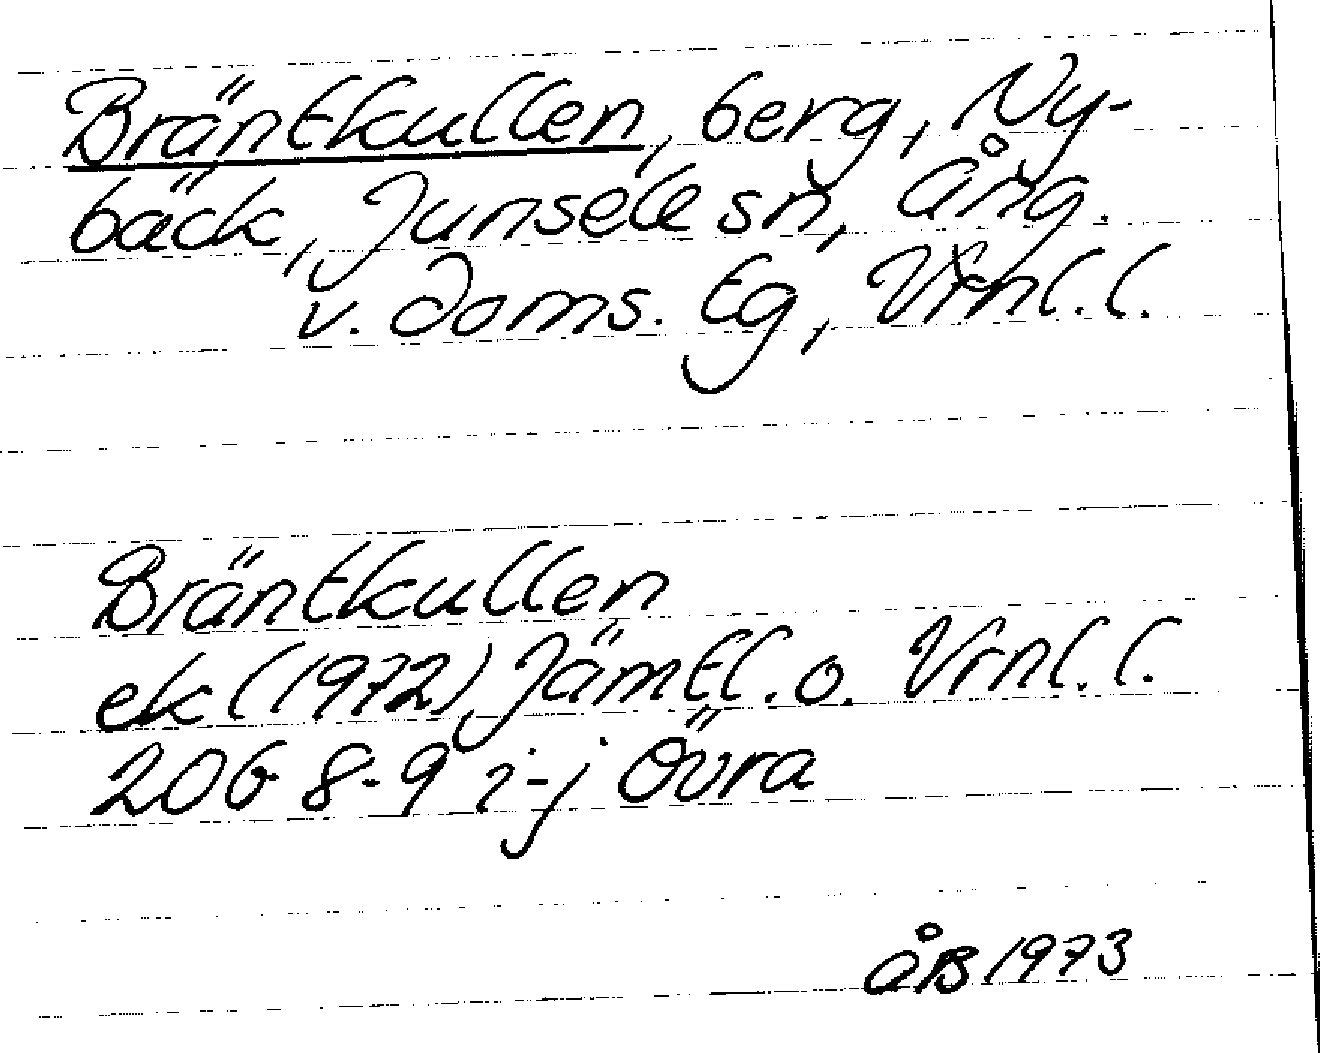 Bräntkullen, berg, Ny-
bäck, Junsele sn, Ång.
v. doms. tg, Vrnl. l.
Bräntkullen
ek (1972), Jämtl. o. Vrnl. l.
20G 8-9 i-j Övra
ÅB 1973